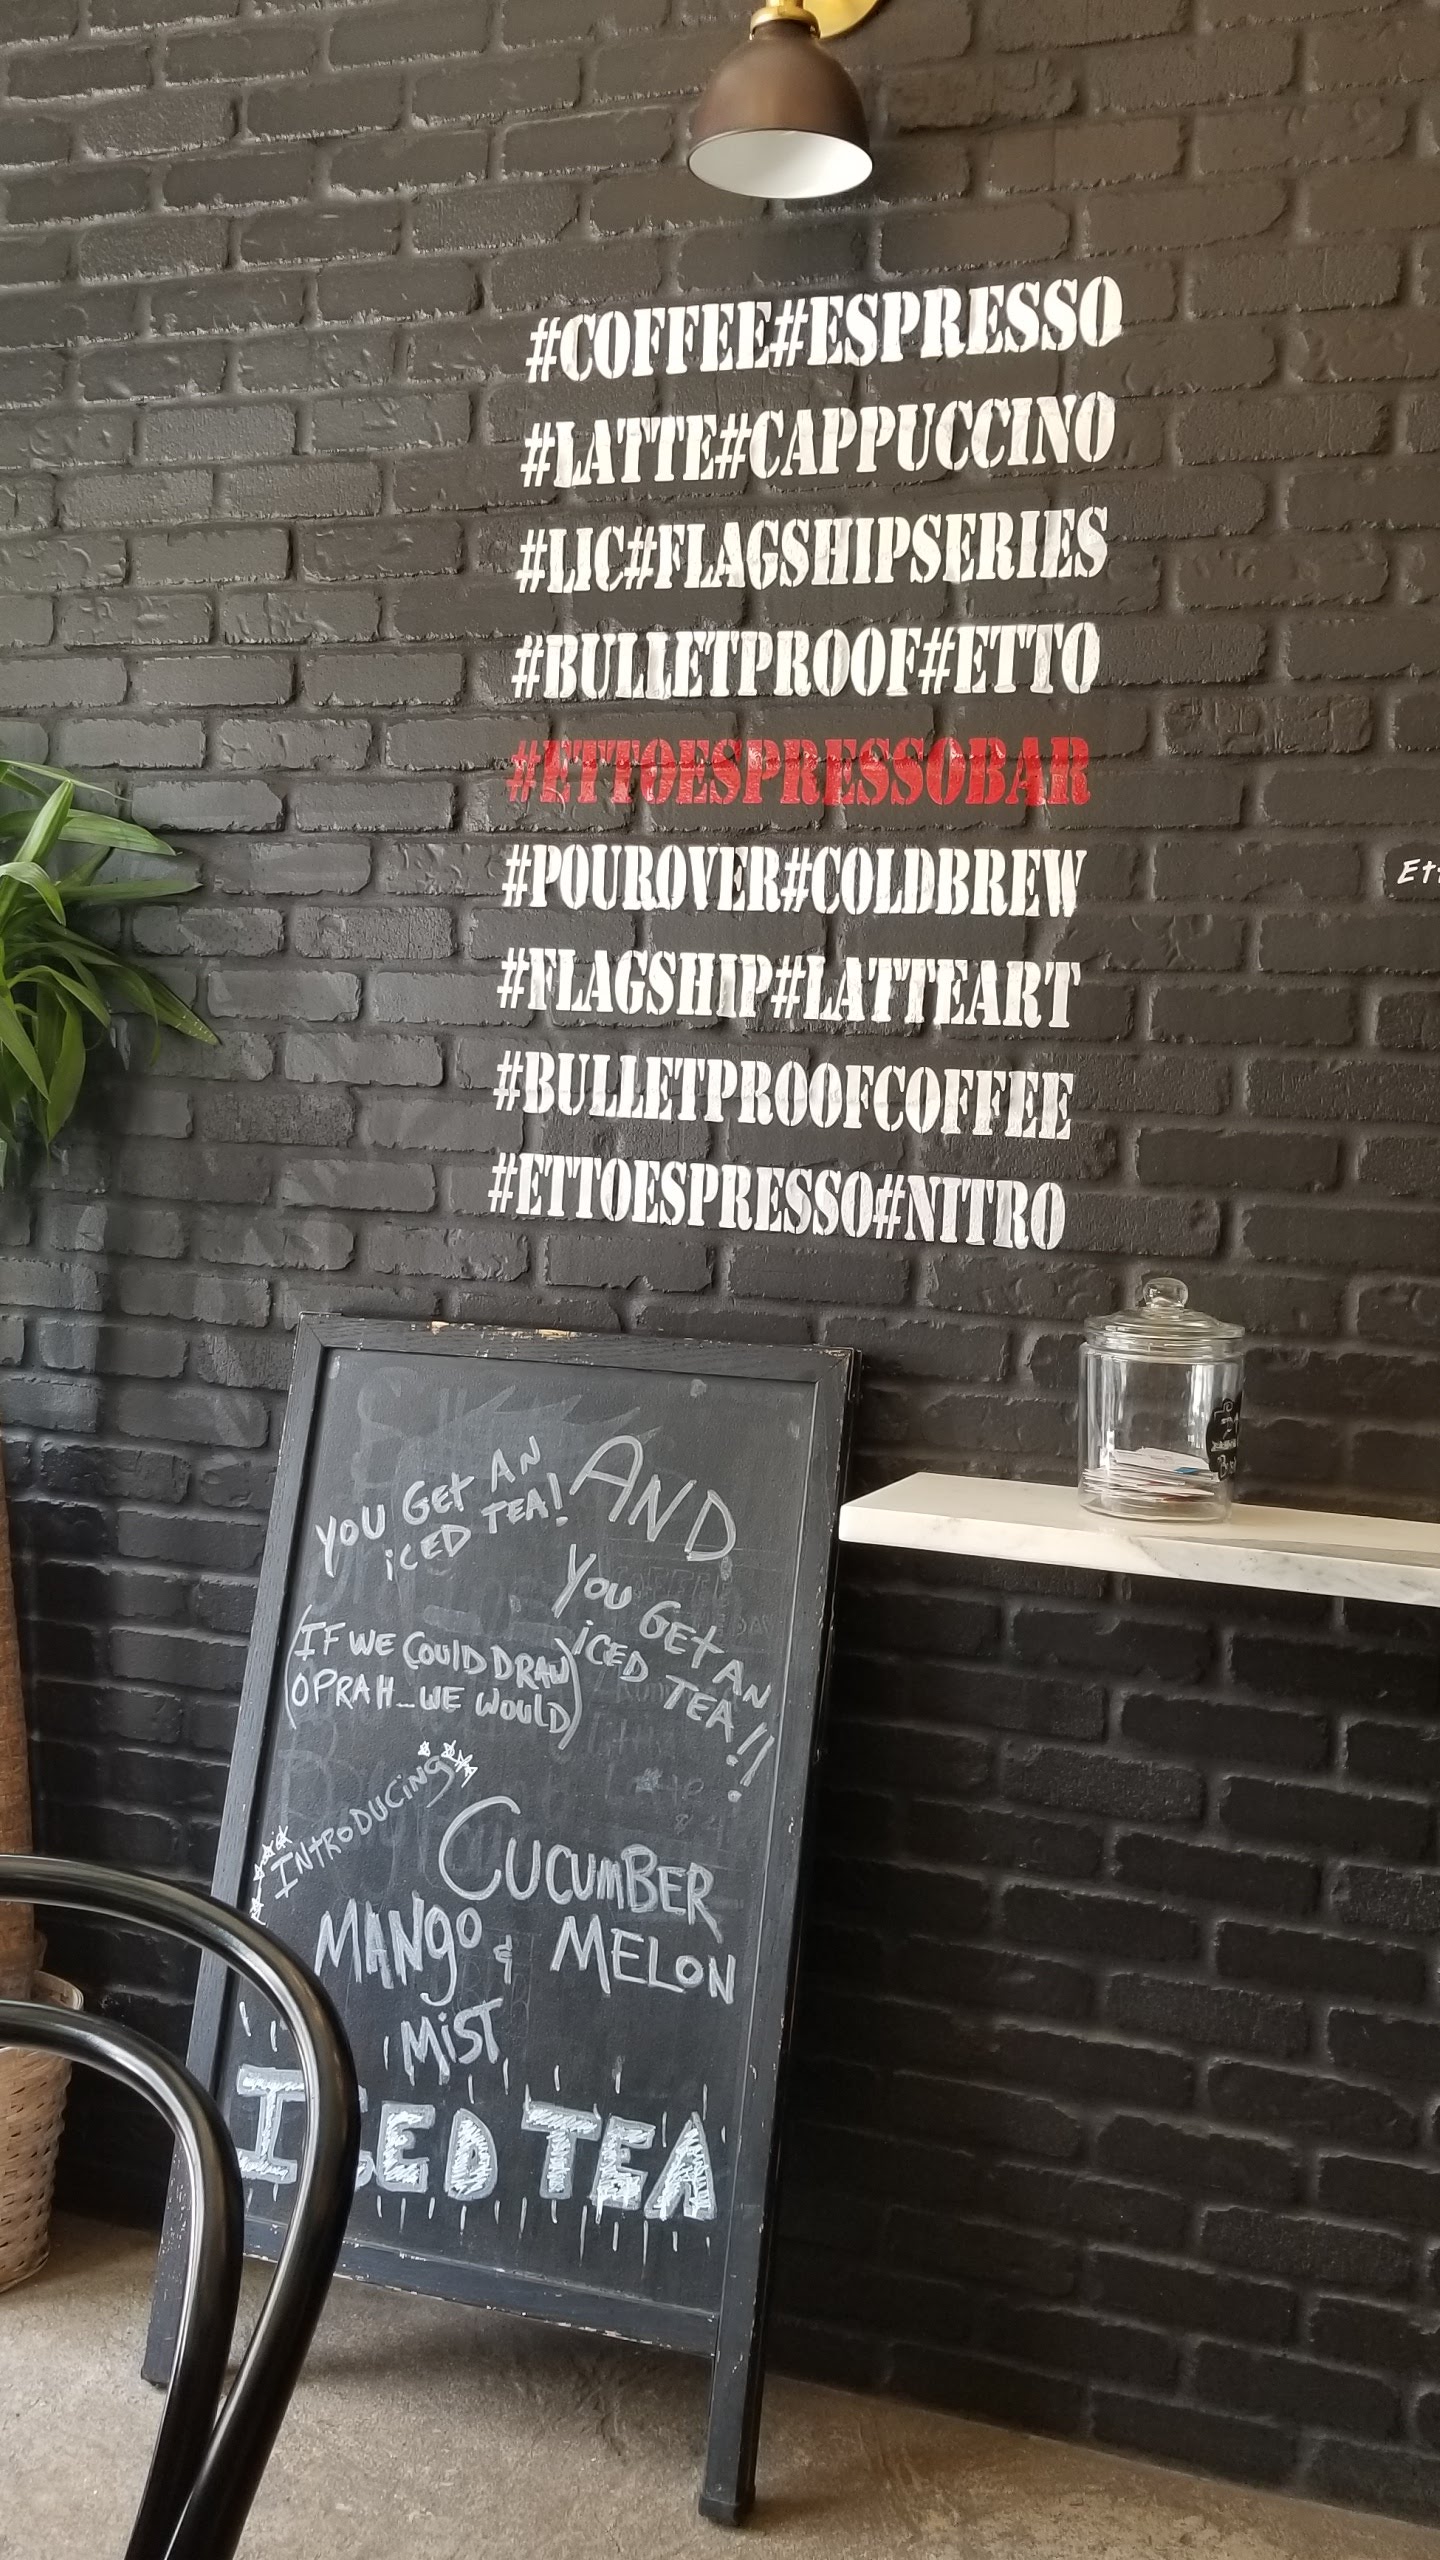 #COFFEE#ESPRESSO
#LATTE#CAPPUCCINO
#LIC#FLAGSHIPSERIES
#BULLETPROOF#ETTO
#ETTOESPRESSOBAR
#POUROVER#COLDBREW
#FLAGSHIP#LATTEART
#BULLETPROOFCOFFEE
#ETTOESPRESSO#NITRO
YOU Get AN
iCED TEA!
AND
You GEt AN
iCED TEA!!
(IF WE COULD DRAW
OPRAH_WE WOULD)
INtRODUCing
CUCUMBER
MANgo & MELON
MiST
ICED TEA